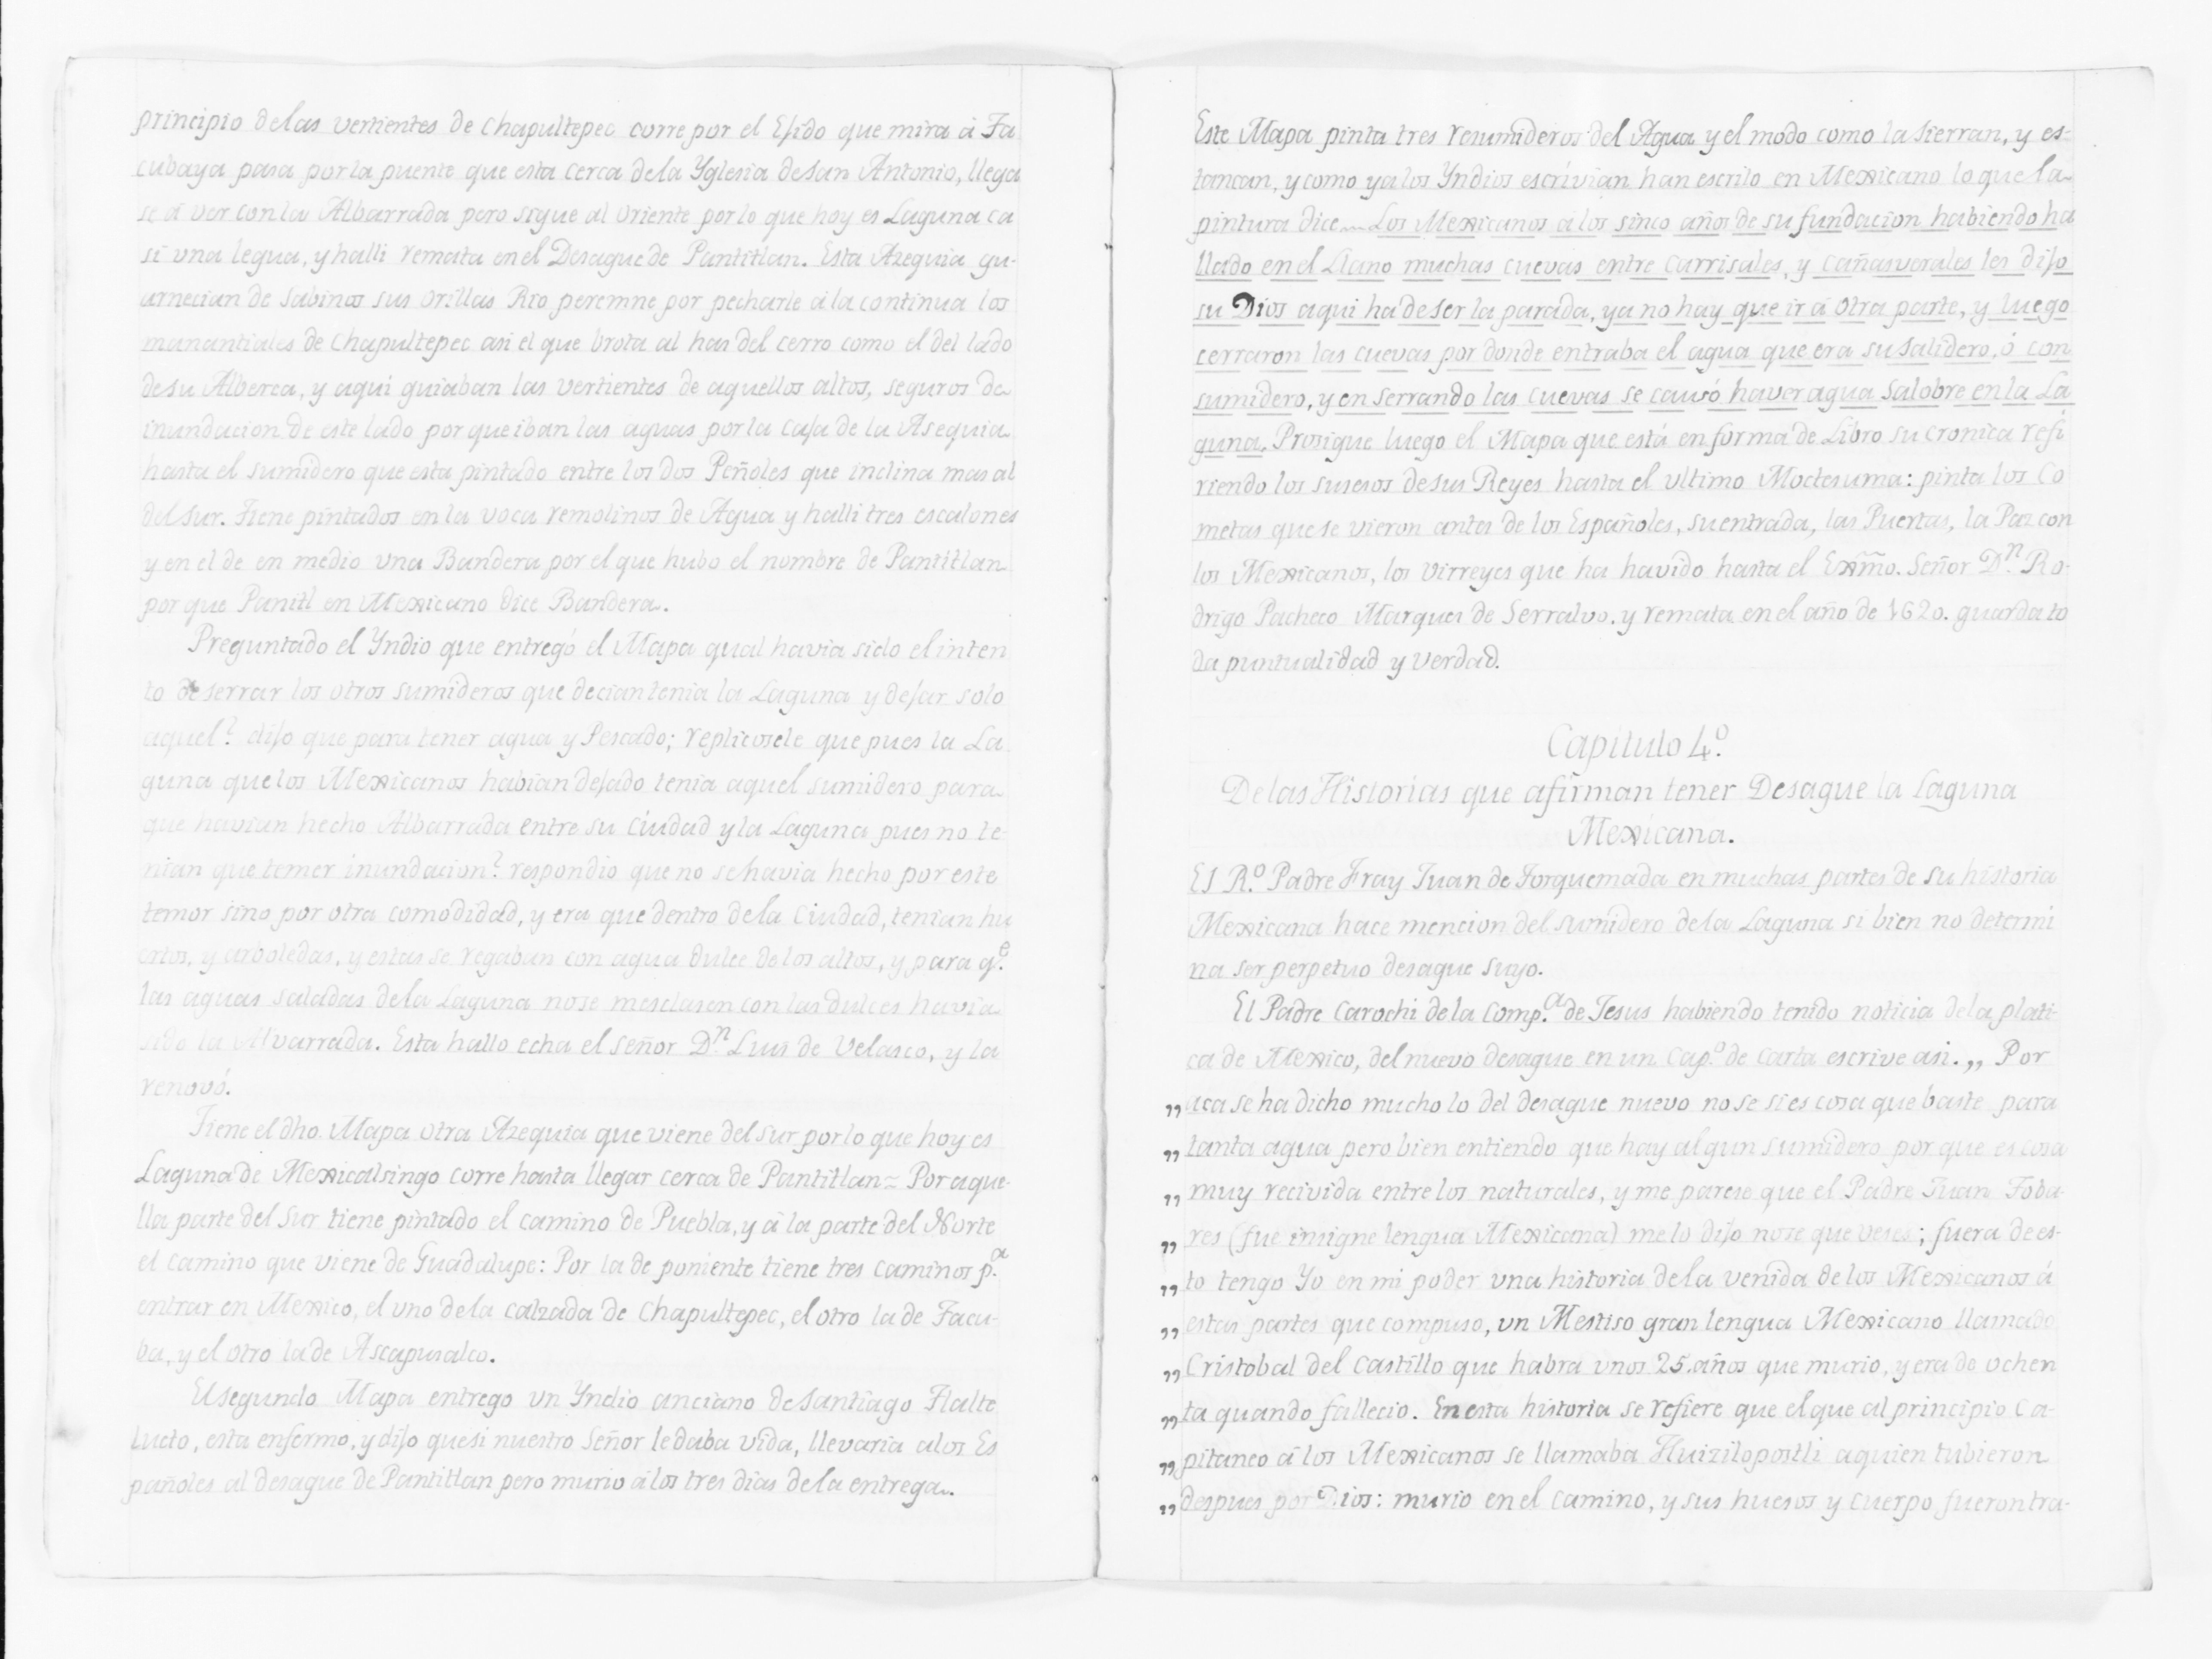 principio delas vertientes de Chapultepec corre por el Esido que mira á Ta
cubaya pasa por la puente que esta cerca dela Yglesia de San Antonio, llega
se á ver con la Albarrada pero sigue al Oriente por lo que hoy es Laguna ca
si una legua, y halli remata en el Desague de Pantitlan. Esta Azequia gu-
arnecian de Sabinos sus Orillas Rio peremne por pecharle á la continua los
manantiales de Chapultepec asi el que brota al has del cerro como el del lado
de su Alberca, y aqui guiaban las vertientes de aquellos altos, seguros de
inundacion de este lado por que iban las aguas por la Casa de la Asequia
hasta el sumidero que esta pintado entre los dos Peñoles que inclina mas al
del Sur. Tiene pintados en la voca remolinos de Agua y halli tres escalones
y en el de en medio una Bandera por el que hubo el nombre de Pantitlan
por que Panitl en Mexicano dice Bandera.
Preguntado el Yndio que entregó el Mapa qual havia sido el inten
to de serrar los otros sumideros que decian tenia la Laguna y desar solo
aquel? diso que para tener agua y Pescado; replicosele que pues la La
guna que los Mexicanos habian desado tenia aquel sumidero para
que havian hecho Albarrada entre su Ciudad y la Laguna pues no te-
nian que temer inundacion? respondio que no se havia hecho por este
temor sino por otra comodidad, y era que dentro dela Ciudad, tenian hu
ertos, y arboledas, y estas se regaban con agua dulce de los altos, y para q.e
las aguas saladas dela Laguna no se mesclasen con las dulces havia
sido la Alvarrada. Esta hallo echa el señor D.n Luis de Velasco, y la
renovó.
Tiene el dho. Mapa otra Azequia que viene del sur por lo que hoy es
Laguna de Mexicalsingo corre hasta llegar cerca de Pantitlan = Por aque-
lla parte del Sur tiene pintado el camino de Puebla, y á la parte del Norte
el camino que viene de Guadalupe: Por la de poniente tiene tres caminos p.a
entrar en Mexico, el uno dela calzada de Chapultepec, el otro la de Tacu-
ba, y el otro la de Ascapusalco.
El segundo Mapa entrego un Yndio anciano de Santiago Tlalte
lucto, esta enfermo, y diso que si nuestro Señor le daba vida, llevaria a los Es
pañoles al desague de Pantitlan pero murio á los tres dias de la entrega.
Este Mapa pinta tres resumideros del Agua y el modo como la sierran, y es-
tancan, y como ya los Yndios escrivian han escrito en Mexicano lo que la
pintura dice... Los Mexicanos á los sinco años de su fundacion habiendo ha
llado en el Llano muchas cuevas entre Carrisales, y Cañasverales les diso
su Dios aqui ha de ser la parada, ya no hay que ir á otra parte, y luego
cerraron las cuevas por donde entraba el agua que era su salidero, ó con
sumidero, y en serrando las cuevas se causó haver agua salobre en la La
guna. Prosigue luego el Mapa que está en forma de Libro su cronica refi
riendo los susesos de sus Reyes hasta el ultimo Moctesuma: pinta los Co
metas que se vieron antes de los Españoles, su entrada, las Puertas, la Paz con
los Mexicanos, los Virreyes que ha havido hasta el Exmo. Señor D.n Ro-
drigo Pacheco Marques de Serralvo. y remata en el año de 1620. guarda to
da puntualidad y verdad.
Capitulo 4.o
De las Historias que afirman tener Desague la Laguna
Mexicana.
El R.o Padre Fray Juan de Torquemada en muchas partes de su historia
Mexicana hace mencion del sumidero de la Laguna si bien no determi
na ser perpetuo desague suyo.
El Padre Carochi de la Comp.a de Jesus habiendo tenido noticia de la plati-
ca de Mexico, del nuevo desague en un Cap.o de Carta escrive asi. „ Por
„ aca se ha dicho mucho lo del desague nuevo no se si es cosa que baste para
„ tanta agua pero bien entiendo que hay algun sumidero por que es cosa
„ muy recivida entre los naturales, y me parese que el Padre Juan Toba-
„ res (fue insigne lengua Mexicana) me lo diso no se que veses; fuera de es-
„ to tengo Yo en mi poder una historia dela venida de los Mexicanos á
„ estas partes que compuso, un Mestiso gran lengua Mexicano llamado
„ Cristobal del Castillo que habra unos 25. años que murio, y era de ochen
„ ta quando fallecio. En esta historia se refiere que el que al principio Ca-
„ pitaneo á los Mexicanos se llamaba Huizilopostli a quien tubieron
„ despues por Dios: murio en el camino, y sus huesos y cuerpo fueron tra-